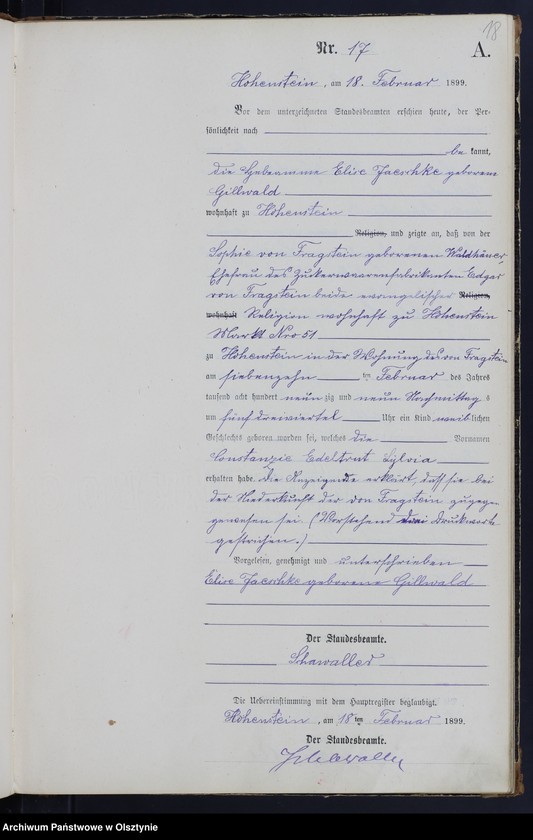 18
Nr. 17
A.
Hohenstein, am 18. Februar 1899.
Vor dem unterzeichneten Standesbeamten erschien heute, der Per-
sönlichkeit nach
be kannt,
die Hebeamme Elise Jaeschke geborene
Gillwald
wohnhaft zu Hohenstein
Religion, und zeigte an, daß von der
Sophie von Fragstein geborenen
Ehefrau des Zuckerwaarenfabrikanten Edgar
von Fragstein beide evangelischer Religion,
wohnhaft Religion wohnhaft zu Hohenstein
Markt Nro 51
zu Hohenstein in der Wohnung des von Fragstein
am siebenzehn ten Februar des Jahres
tausend acht hundert neunzig und neun Nachmittag s
um fünf dreiviertel Uhr ein Kind weiblichen
Geschlechts geboren worden sei, welches die Vornamen
Constanzie Edeltrut Sylvia
erhalten habe. Die Anzeigende erklärt, daß sie bei
der Niederkunft der von Fragstein zugegen
gewesen sei. (Vorstehend drei Druckworte
gestrichen.)
Vorgelesen, genehmigt und unterschrieben
Elise Jaeschke geborene Gillwald
Der Standesbeamte.
Schawaller
Die Uebereinstimmung mit dem Hauptregister beglaubigt.
Hohenstein, am 18 ten Februar 1899.
Der Standesbeamte.
Schawaller
Archiwum Państwowe w Olsztynie